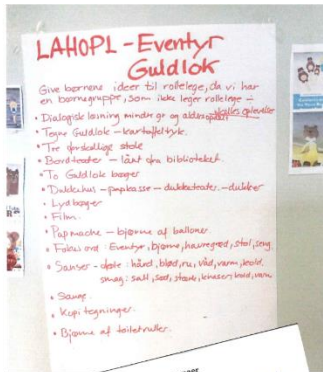 LAHOPL - Eventyr
Guldlok
Give børnene ideer til rollelege, da vi har
en børnegruppe, som ikke leger rollelege -
fælles oplevelse
• Dialogisk læsning mindre gr og aldersopdelt
• Tegne Guldlok - kartoffeltryk.
• Tre forskellige stole
• Bordteater - lånt fra biblioteket.
• To Guldlok bøger
• Dukkehus - papkasse - dukketeater - dukker
• Lydbøger
• Film.
• Papmache - bjørne af balloner.
• Fokus ord: Eventyr, bjørne, havregrød, stol, seng.
• Sanser - føle: hård, blød, ru, våd, varm, kold.
smag: salt, sød, stærk, kold, varm
• Sange
• Kopi tegninger.
• Bjørne af toiletruller.